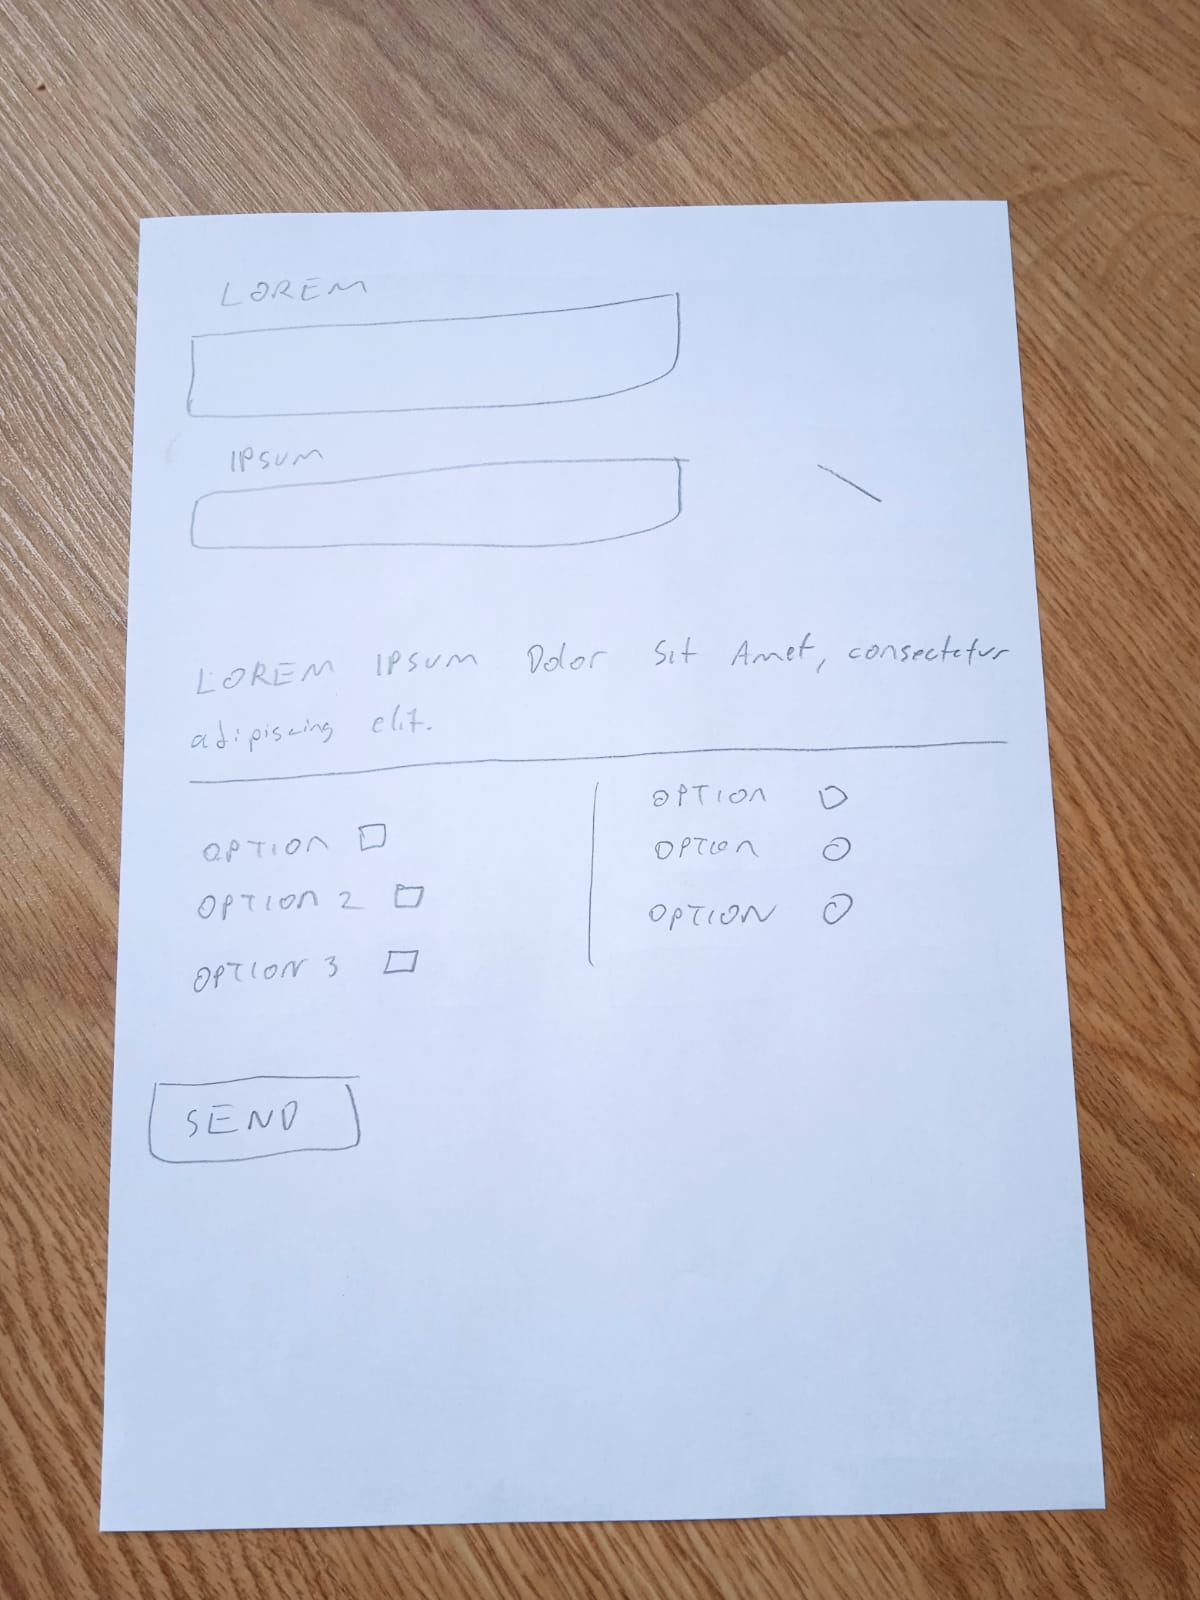 LOREM
IPSUM
LOREM IPSUM Dolor Sit Amet, consectetur
adipiscing elit.
OPTION
OPTION 2
OPTION 3
OPTION
OPTION
OPTION
SEND